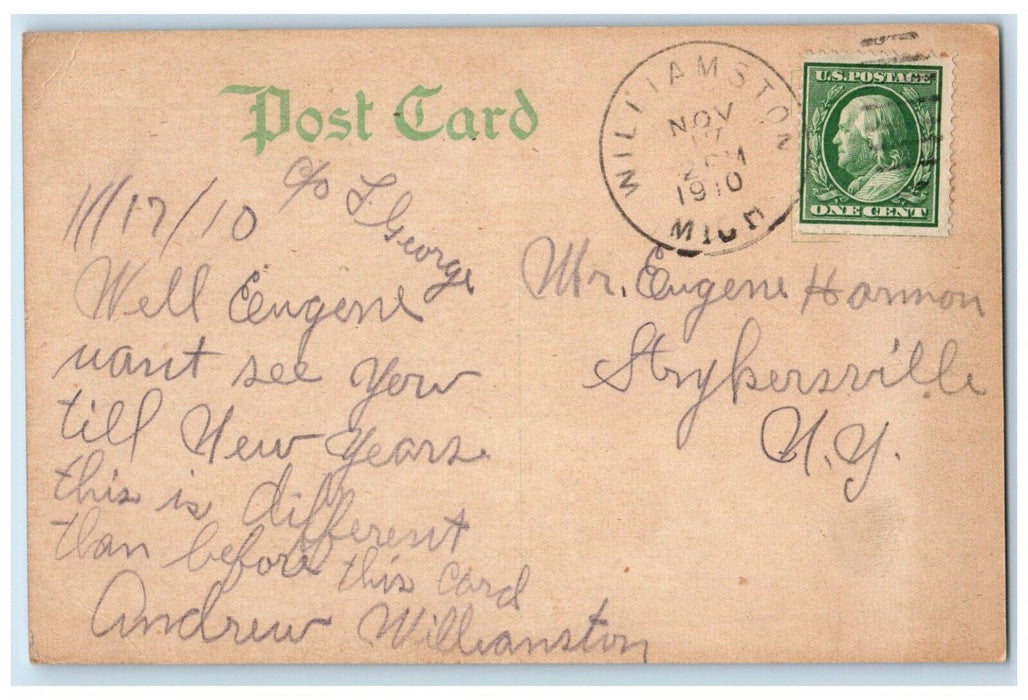 Post Card
WILLIAMSTON
NOV
17
2 PM
1910
MICH
U.S. POSTAGE
ONE CENT
11/17/10
c/o L. George
Well Eugene
want see you
till New Years.
this is different
than before this card
Andrew Williamston
Mr. Eugene Harmon
Strykersville
N.Y.